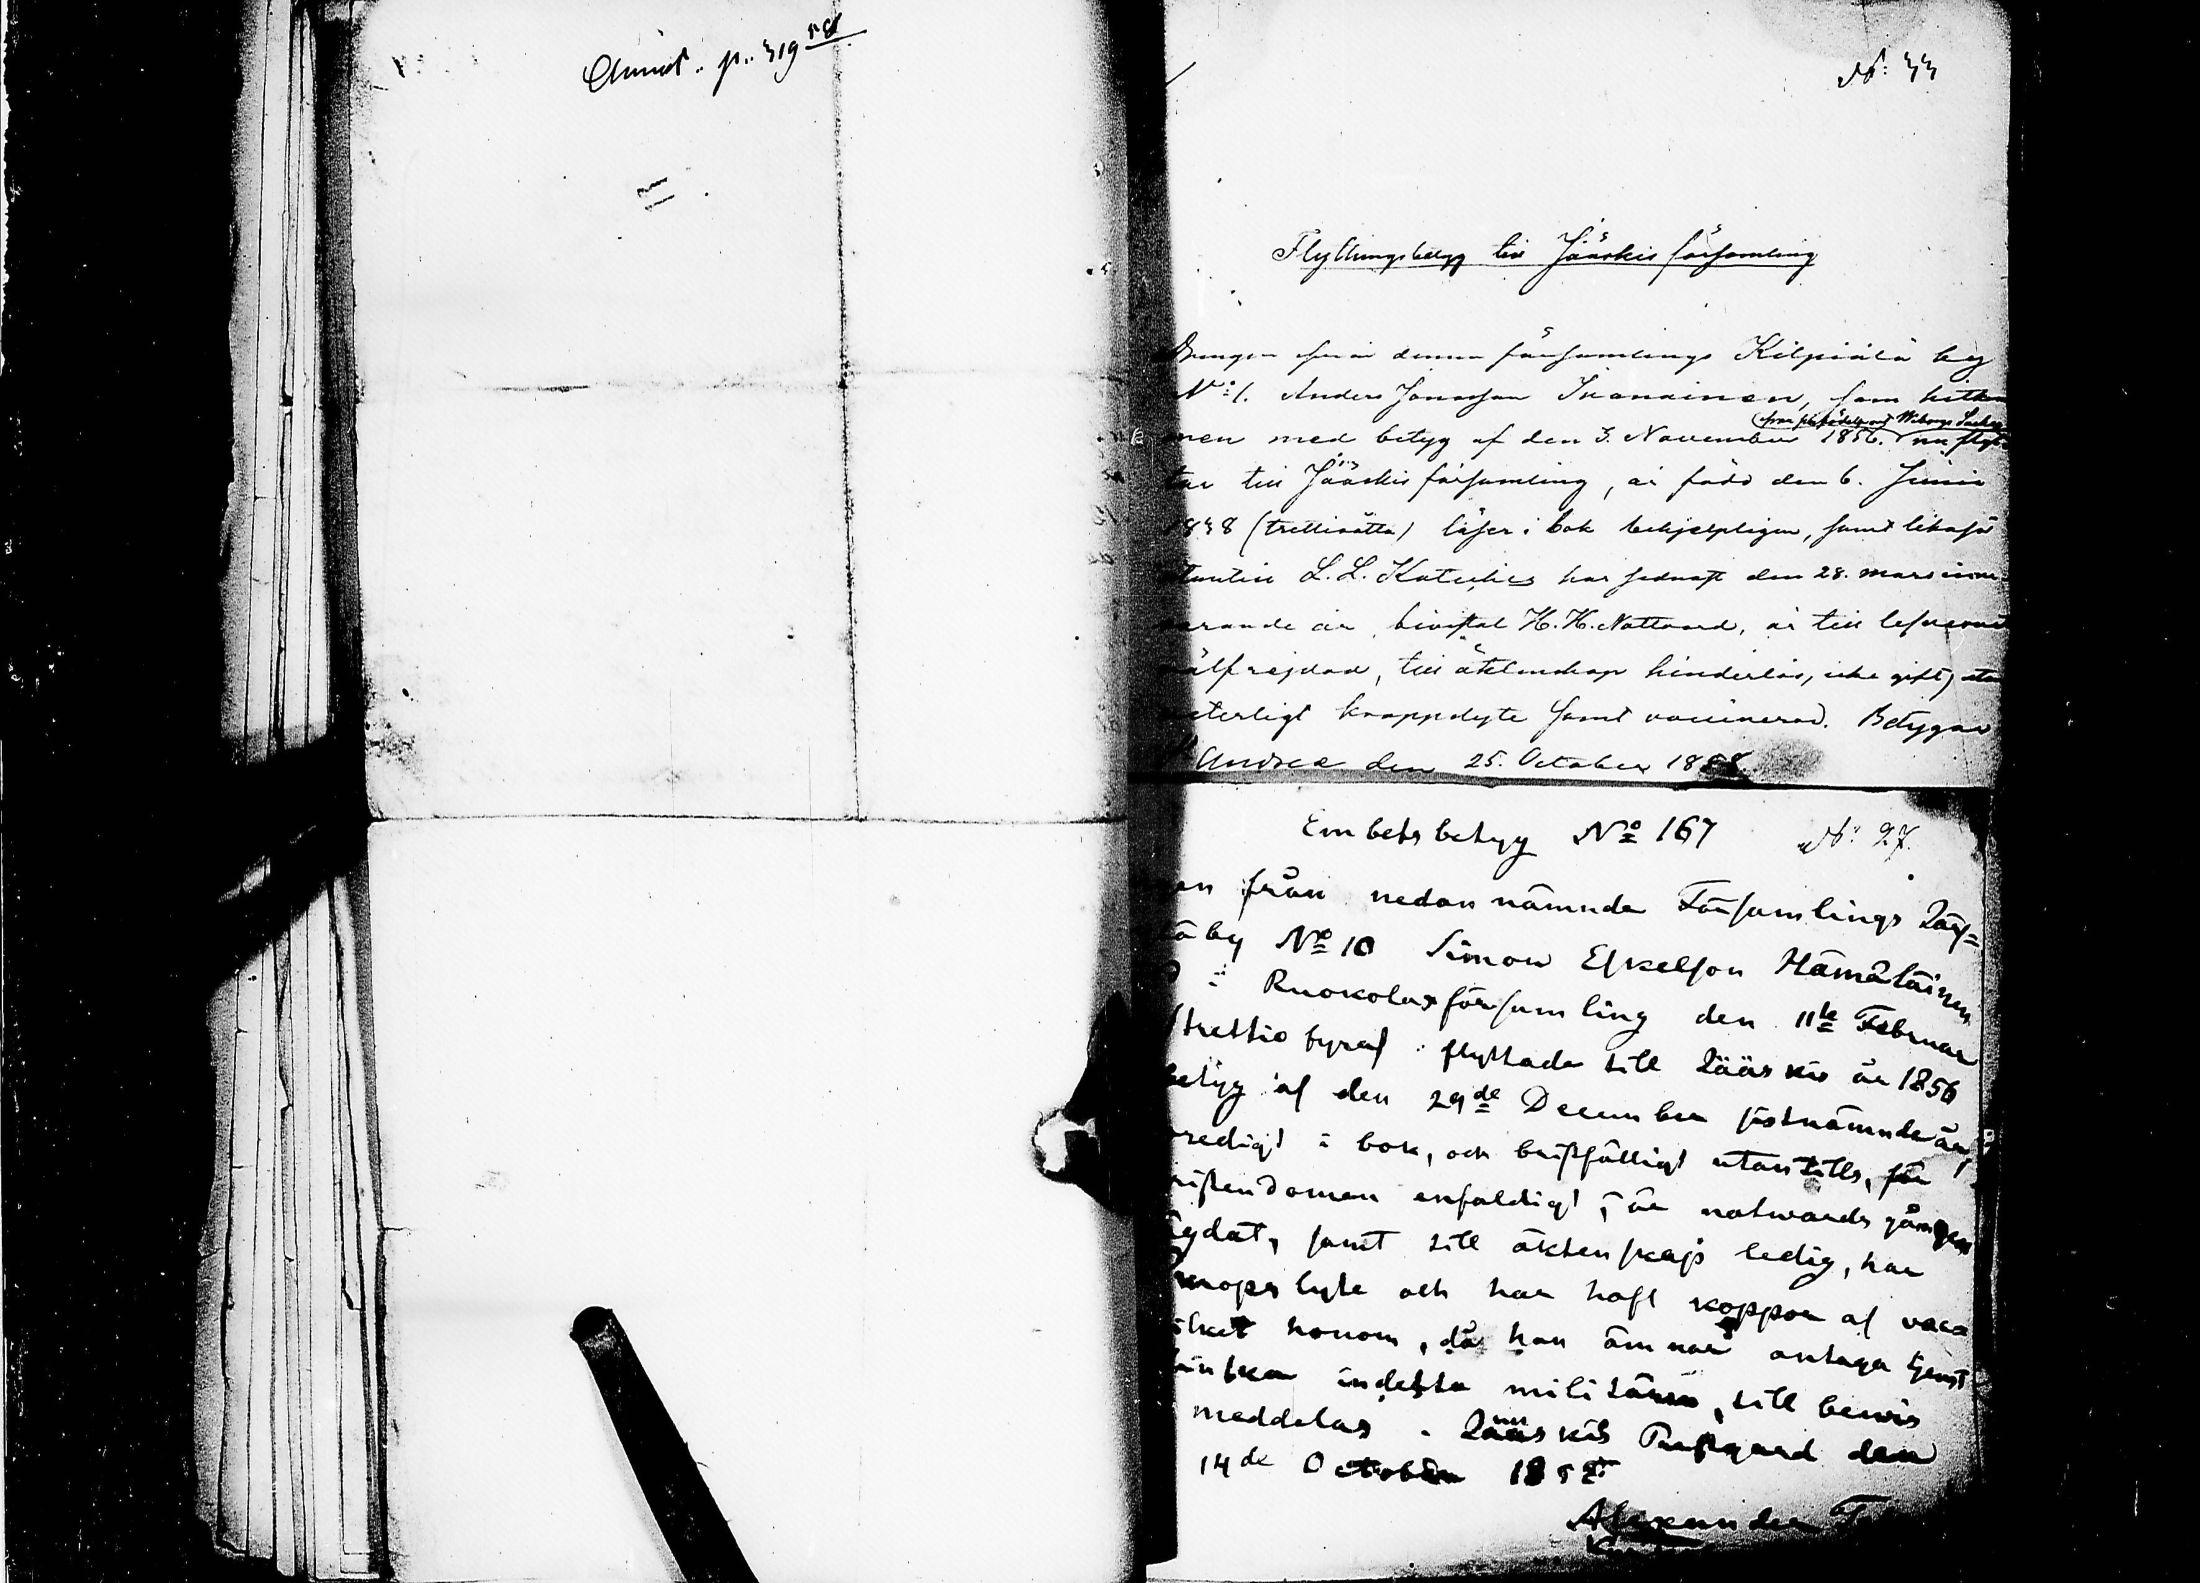 p. 319
No: 33
Flyttningsbetyg till Jääskis församling
Drengen från denna församlings Kilpiälä by
N:o 1. Anders Jonasson Ikonainen, som hitkom
från Wiborgs
men med betyg af den 3. November 1856. nu flyt-
tar till Jääskis församling, är född den 6. Junii
1838 (trettioåtta) läser i bok behjelpligen, samt likaså
utantill L. L. Kateches har sednast den 28. mars inne-
varande år bivistat H. H. Nattvard, är till lefverne
välfrejdad, till äktenskap hinderlös, icke gift, utan
veterligt kroppslyte samt vaccinerad. Betygar
S:t Andrea den 25. October 1858.
Embetsbetyg No 167 No: 27.
en från nedannämnde Församlings Jäy=
ä by No 10 Simon Eskelson Hämäläinen
i Ruokolax församling den 11te Februar
trettio fyra flyttade till Jääskis år 1856
betyg af den 29de December sistnämnde år,
redigt i bok, och bristfälligt utantills, för
ristendomen enfaldigt, är natwards gången
ygdat, samt till äktenskap ledig, har
kropslyte och har haft koppor af vacc
ilket honom, då han ämnar antaga tjenst
finska indelta militären, till bewis
meddelas. Jääskis Prestgård den
14de October 1858
Alexander